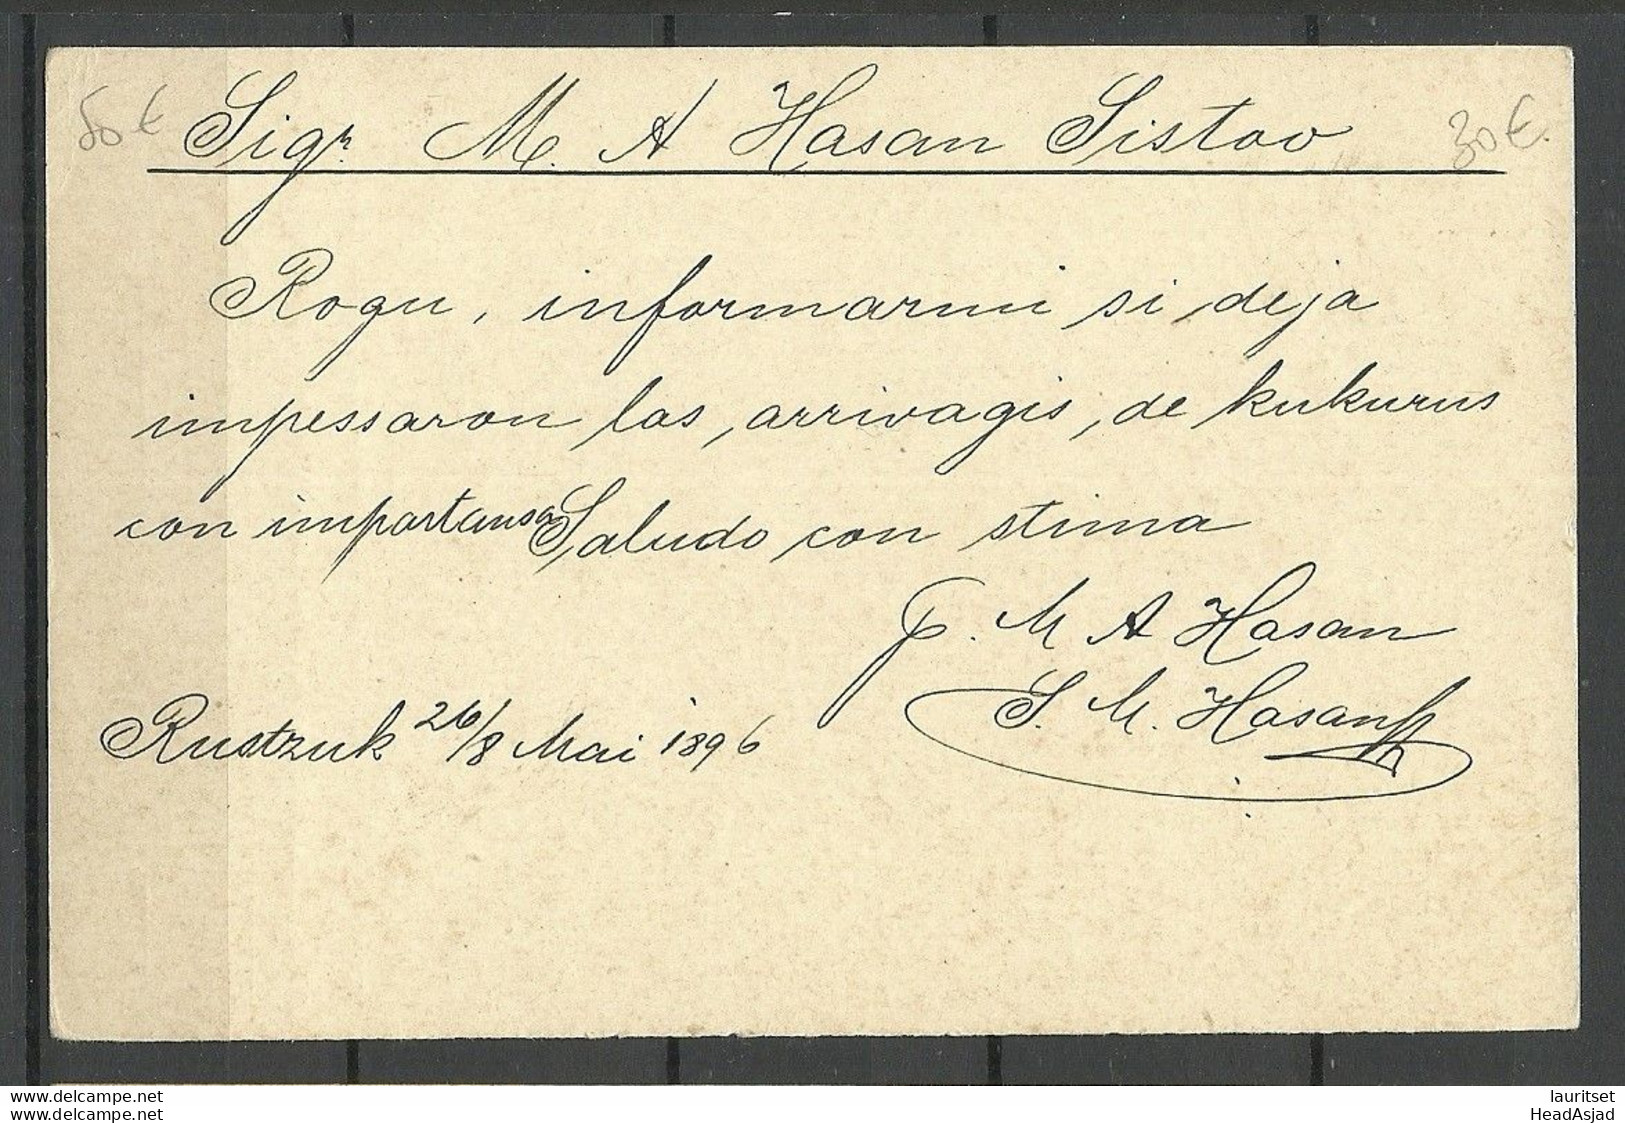 80 € Sigr. M. A Hasan Sistov 30 €.
Rogu, informarmi si deja
impessaron las, arrivagis, de kukurus
con importansa Saludo con stima
p. M A Hasan
S. M. Hasan
Rustzuk 26/8 Mai 1896
www.delcampe.net
www.delcampe.net
lauritset
HeadAsjad